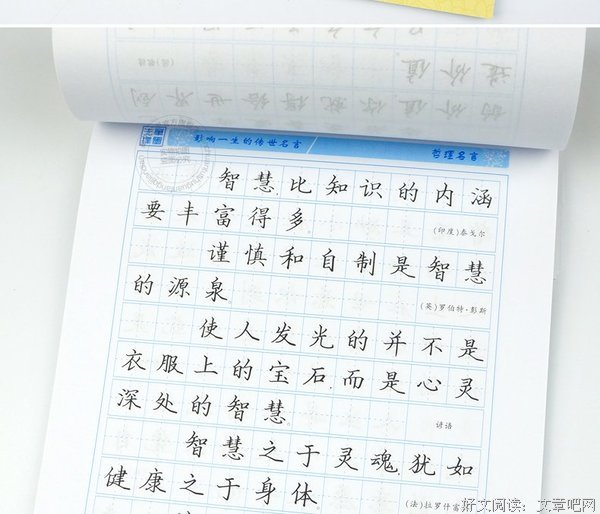 影响一生的传世名言
哲理名言
智慧比知识的内涵
要丰富得多
(印度)泰戈尔
谨慎和自制是智慧
的源泉
(英)罗伯特·彭斯
使人发光的并不是
衣服上的宝石,而是心灵
深处的智慧。
谚语
智慧之于灵魂,犹如
健康之于身体
(法)拉罗什富
好文阅读：文章吧网